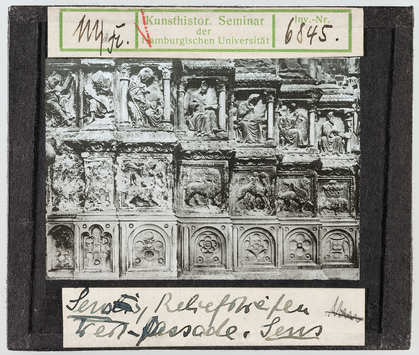 Kunsthistor. Seminar
der
Hamburgischen Universität
Inv.-Nr.
6845.
Sens, Reliefstreifen
West-fassade. Sens